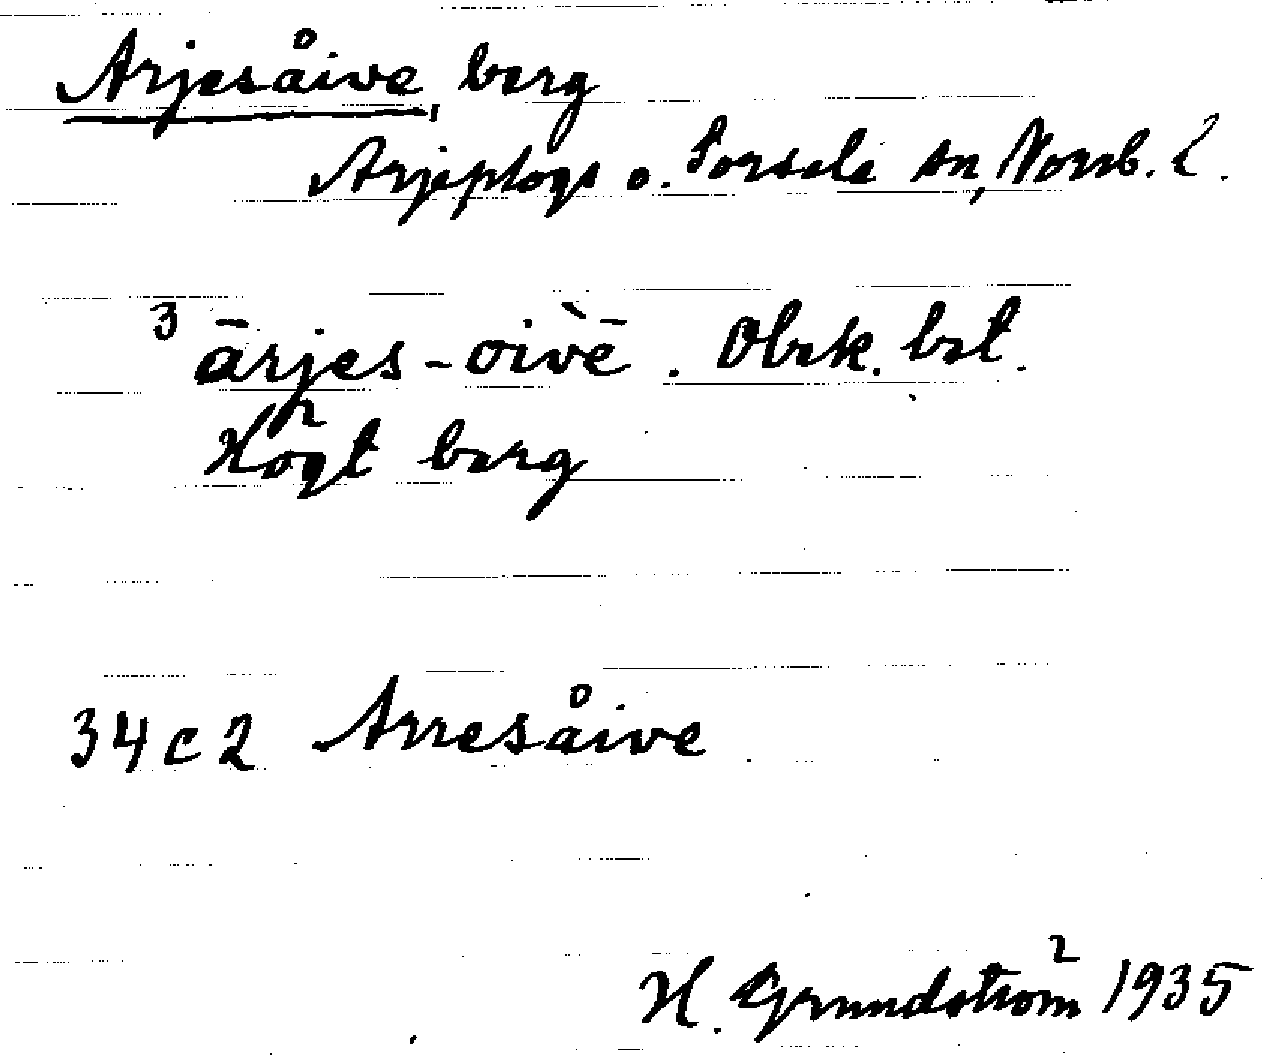 Arjesåive, berg
Arjeplogs o. Sorsele sn, Norrb. l.
3 ārjes-oìvē. Obek. bet.
Högt berg
34 c 2 Arresåive
H. Grundström 1935